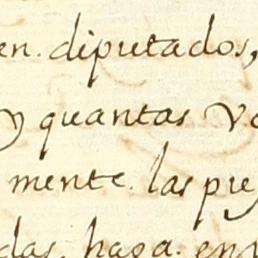 en. diputados,
y quantas ve
mente. las pre
das. haga. en